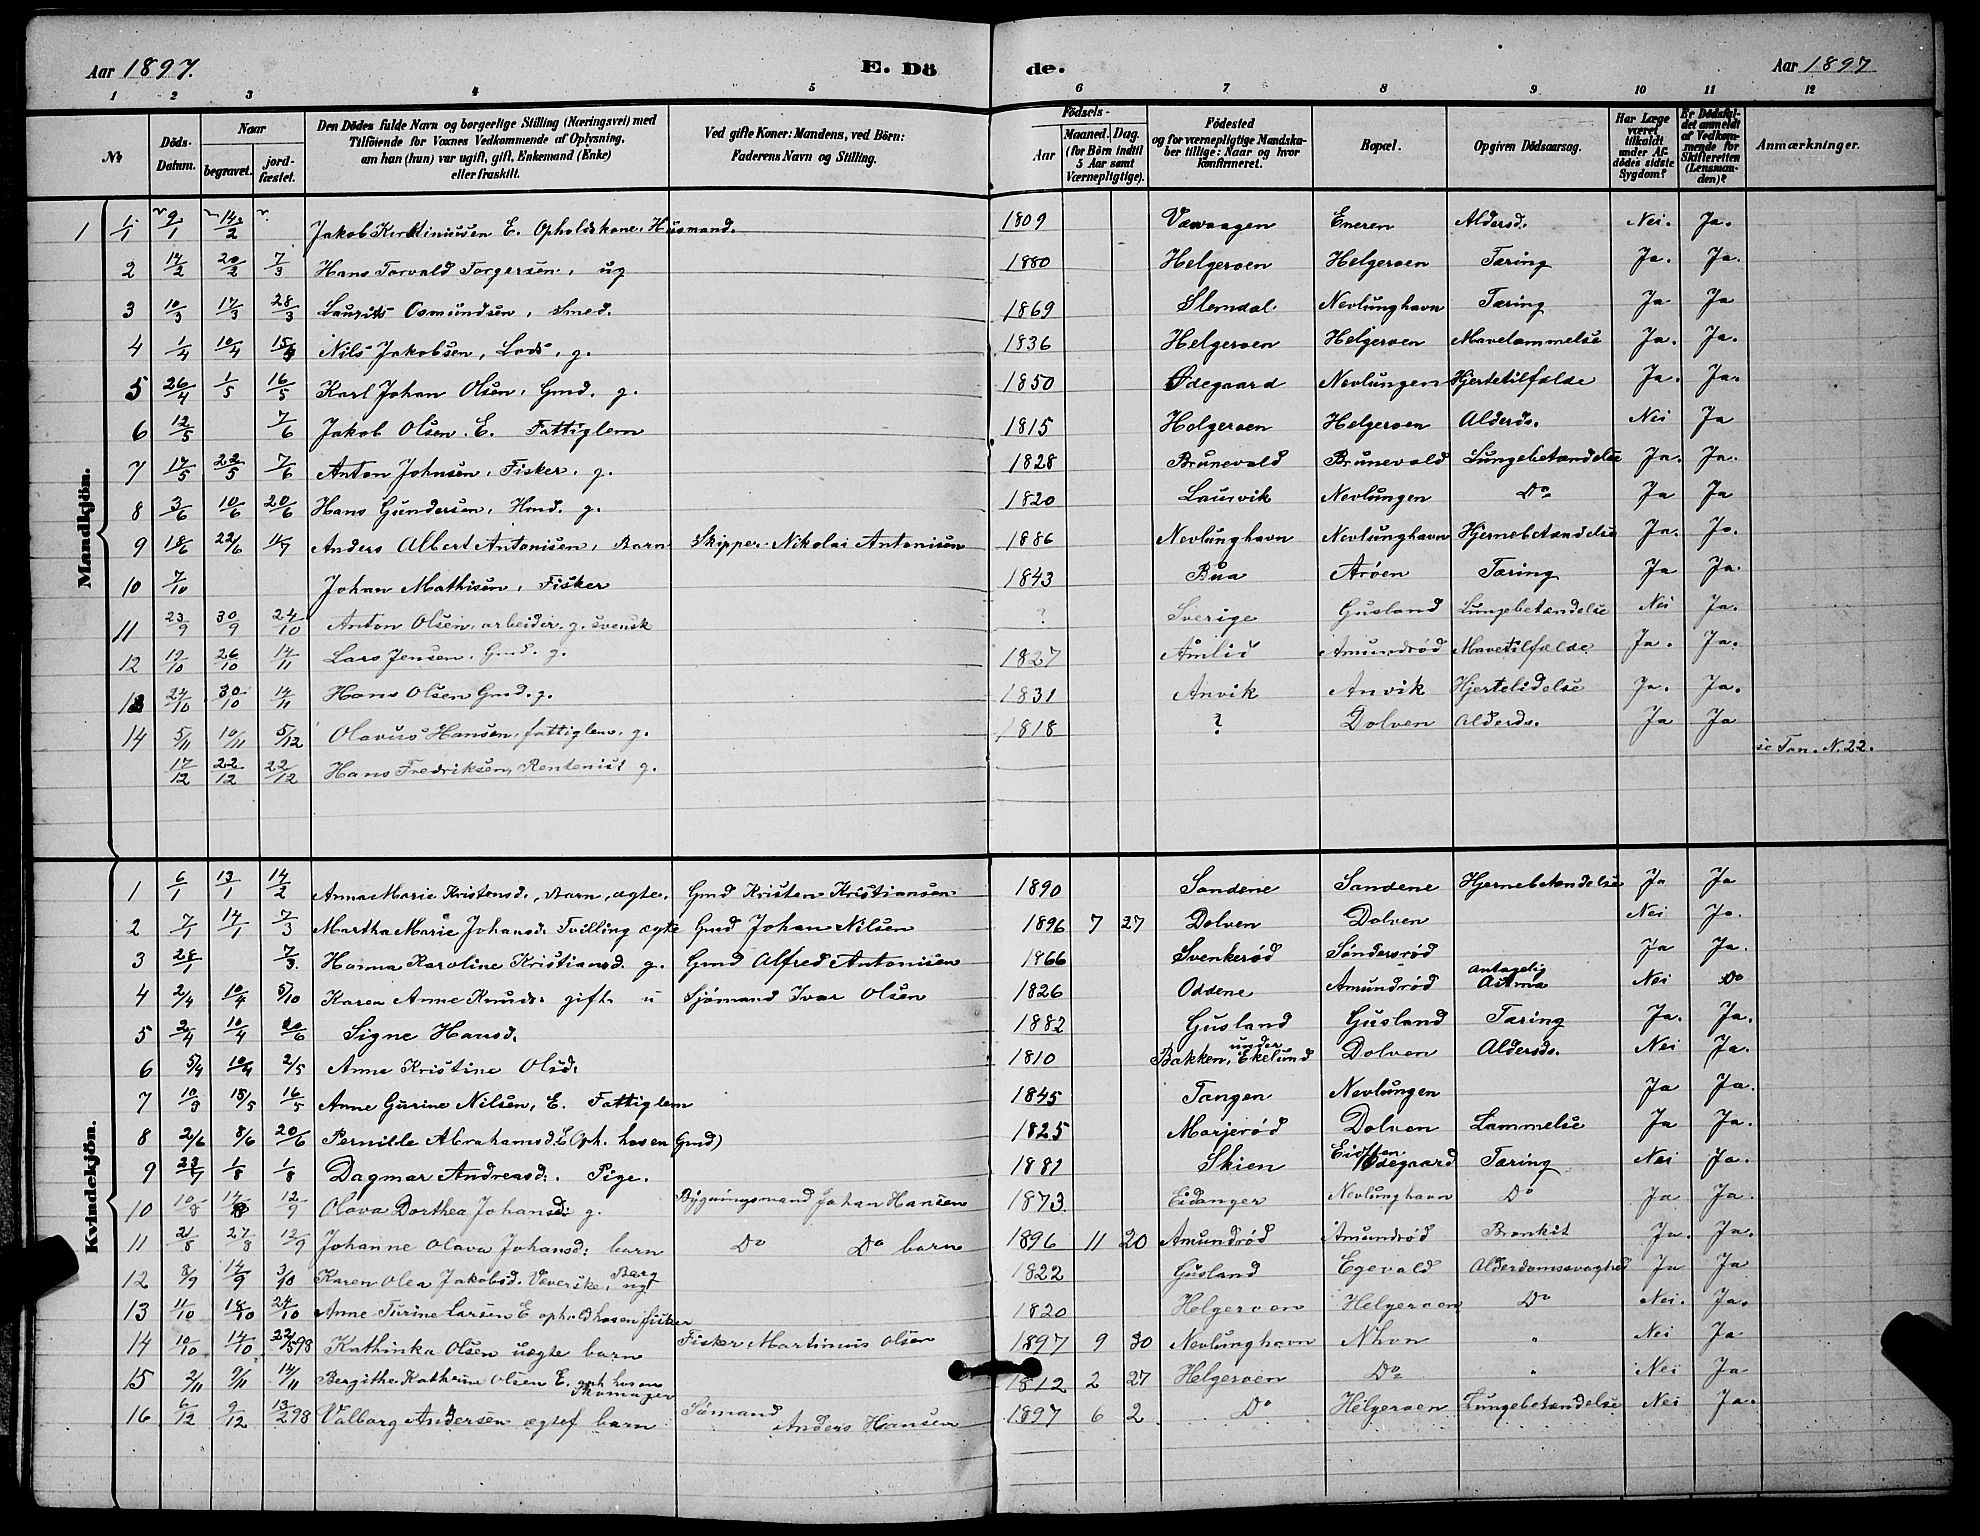 Aar 1897. E. Dö de. Aar 1897
1 2 3 4 5 6 7 8 9 10 11 12
No Döds-Datum. Naar begravet. jord-fæstet. Den Dödes fulde Navn og borgerlige Stilling (Næringsvei) med Tilföiende for Voxnes Vedkommende af Oplysning, om han (hun) var ugift, gift, Enkemand (Enke) eller fraskilt. Ved gifte Koner: Mandens, ved Börn: Faderens Navn og Stilling. Födsels- Aar Maaned. Dag. (for Börn indtil 5 Aar samt Værnepligtige). Födested og for værnepligtige Mandskaber tillige: Naar og hvor konfirmeret. Bopæl. Opgiven Dödsaarsag. Har Læge været tilkaldt under Afdödes sidste Sygdom? Er Dödsfaldet anmeldt af Vedkommende for Skifteretten (Lensmanden)? Anmærkninger.
Mandkjön.
1 1/1 9/1 14/2 Jakob Kristiniusen E. Opholdskone. Husmand. 1809 Vævaagen Eneren Aldersd. Nei. Ja.
2 14/2 20/2 7/3 Hans Torvald Torgersen, ug 1880 Helgeroen Helgeroen Tæring Ja. Ja.
3 10/3 17/3 28/3 Laurits Osmundsen, Smed. 1869 Slemdal Nevlunghavn Tæring Ja Ja
4 1/4 10/4 15/4 Nils Jakobsen, Lods, g. 1836 Helgeroen Helgeroen Mavelammelse Ja. Ja.
5 26/4 1/5 16/5 Karl Johan Olsen, Gmd. g. 1850 Ødegaard Nevlungen Hjertetilfælde Ja. Ja.
6 12/5 7/6 Jakob Olsen. E. Fattiglem 1815 Helgeroen Helgeroen Alderds. Nei Ja
7 17/5 22/5 7/6 Anton Johnsen, Fisker, g. 1828 Brunevald Brunevald Lungebetændelse Ja. Ja.
8 3/6 10/6 20/6 Hans Gundersen, Hmd. g. 1820 Laurvik Nevlungen Do Ja Ja
9 18/6 22/6 11/7 Anders Albert Antonisen, Barn Skipper. Nikolai Antonisen 1886 Nevlunghavn Nevlunghavn Hjernebetændelse Ja. Ja.
10 7/10 Johan Mathisen, Fisker 1843 Bua Arøen Tæring Ja Ja.
11 23/9 30/9 24/10 Anton Olsen, arbeider, g. svensk ? Sverige Gusland Lungebetændelse Nei Ja.
12 19/10 26/10 14/11 Lars Jensen, Gmd. g. 1827 Åmlid Amundrød Mavetilfælde Ja. Ja.
13 24/10 30/10 14/11 Hans Olsen Gmd. g. 1831 Anvik Anvik Hjertelidelse Ja. Ja.
14 5/11 10/11 5/12 Olavus Hansen, fattiglem, g. 1818 ? Dolven Alderds. Ja Ja
17/12 22/12 22/12 Hans Fredriksen, Rentenist g. se Tan. N. 22.
Kvindekjön.
1 6/1 13/1 14/2 Anna Marie Kristensd., Barn, ægte. Gmd Kristen Kristiansen 1890 Sandene Sandene Hjernebetændelse Ja Ja
2 7/1 14/1 7/3 Martha Marie Johansd. Tvilling ægte Gmd Johan Nilsen 1896 7 27 Dolven Dolven Nei Ja.
3 28/1 7/3. Hanna Karoline Kristiansd. g. Gmd Alfred Antonisen 1866 Svenkerød Søndersrød Ja Ja.
4 2/4 10/4 5/10 Karen Anne Knuds. gift u Sjømand Ivar Olsen 1826 Oddene Amundrød antagelig Astma Nei Do
5 2/4 10/4 20/6 Signe Hansd. 1882 Gusland Gusland Tæring Ja. Ja.
6 5/4 10/4 2/5 Anne Kristine Olsd. 1810 Bakken, under Ekelund Dolven Aldersds. Nei Ja.
7 10/5 15/5 16/5 Anne Gurine Nilsen, E. Fattiglem 1845 Tangen Nevlungen Ja Ja.
8 2/6 8/6 20/6 Pernille Abrahamsd. E. Oph. hos en Gmd) 1825 Marjerød Dolven Lammelse Ja Ja.
9 23/7 1/8 1/8 Dagmar Andreasd. Pige. 1881 Skien Ødegaard Tæring Nei Ja.
10 10/8 14/8 12/9 Olava Dorthea Johansd: g. Bygningsmand Johan Hansen 1873. Eidanger Nevlunghavn Do Ja Ja.
11 21/8 27/8 12/9 Johanne Olava Johansd: barn Do Do barn 1896 11 20 Amundrød Amundrød Bronkit Ja. Ja.
12 8/9 14/9 3/10 Karen Olea Jakobsd. Væverske, ugt 1822 Gusland Egevald Alderdomssvaghed Ja Ja
13 11/10 18/10 24/10 Anne Turine Larsen E ophold hos en fisker 1820 Helgeroen Helgeroen Do Nei. Ja.
14 10/10 14/10 22/5 98 Kathinka Olsen uægte barn Fisker Martinius Olsen 1897 9 30 Nevlunghavn Nhvn " Nei Ja
15 2/11 9/11 14/11 Bergithe Kathrine Olsen E. oph hos en Skomager 1812 2 27 Helgeroen Do " Nei Ja
16 6/12 9/12 13/2 98 Valborg Andersen ægtef barn Sømand Anders Hansen 1897 6 2 Do Helgeroen Lungebetændelse Nei Ja.